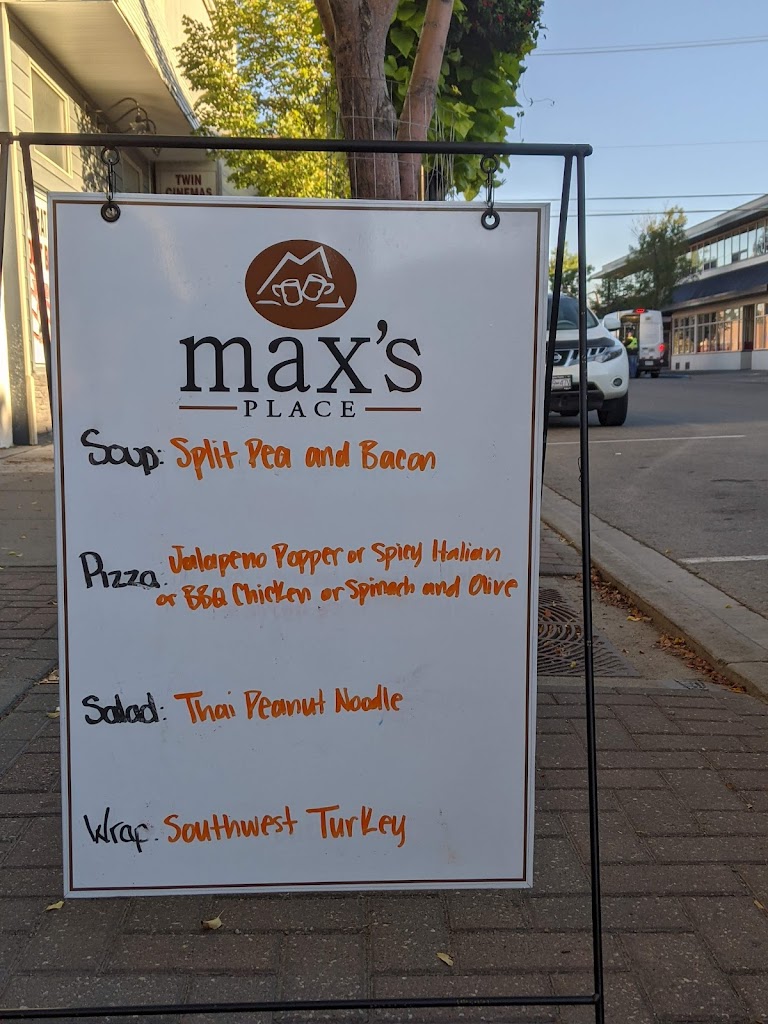 TWIN
CINEMAS
max's
PLACE
Soup: Split Pea and Bacon
Pizza: Jalapeno Popper or Spicy Italian
or BBQ Chicken or Spinach and Olive
Salad: Thai Peanut Noodle
Wrap: Southwest Turkey